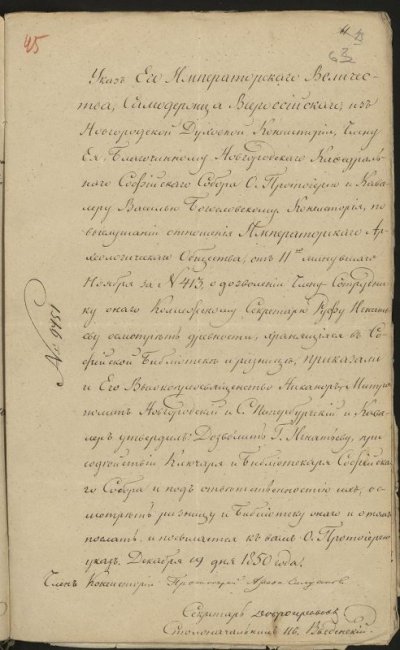 45
Указъ Его Императорскаго Величес-
тва, Самодержца Всероссійскаго, изъ
Новгородской Духовной Консисторіи, Члену
Ея, Благочинному Новгородскаго Кафедраль-
наго Софійскаго Собора О. Протоіерею и Кава-
леру Василью Богословскому. Консисторія, по
выслушаніи отношенія Императорскаго Ар-
хеологическаго Общества, отъ 11го минувшаго
Ноября за № 413, о дозволеніи Члену-Сотрудни-
ку онаго Коллежскому Секретарю Руфу Игнать-
еву осмотрѣть древности, хранящіяся въ Со-
фійской Библіотекѣ и ризницѣ, приказали
и Его Высокопреосвященство Никаноръ, Митро-
политъ Новгородскій и С. Петербургскій и Кава-
леръ утвердилъ: Дозволить Г. Игнатьеву, при
содѣйствіи Ключаря и Библіотекаря Софійска-
го Собора и подъ отвѣтственностію ихъ, ос-
мотрѣть ризницу и библіотеку онаго и о томъ
послать, и посылается къ вамъ О. Протоіерею
указъ. Декабря 19 дня 1850 года.
Членъ Консисторіи Протоіерей
Секретарь
Столоначальникъ Ив. Введенскій.
№ 9451